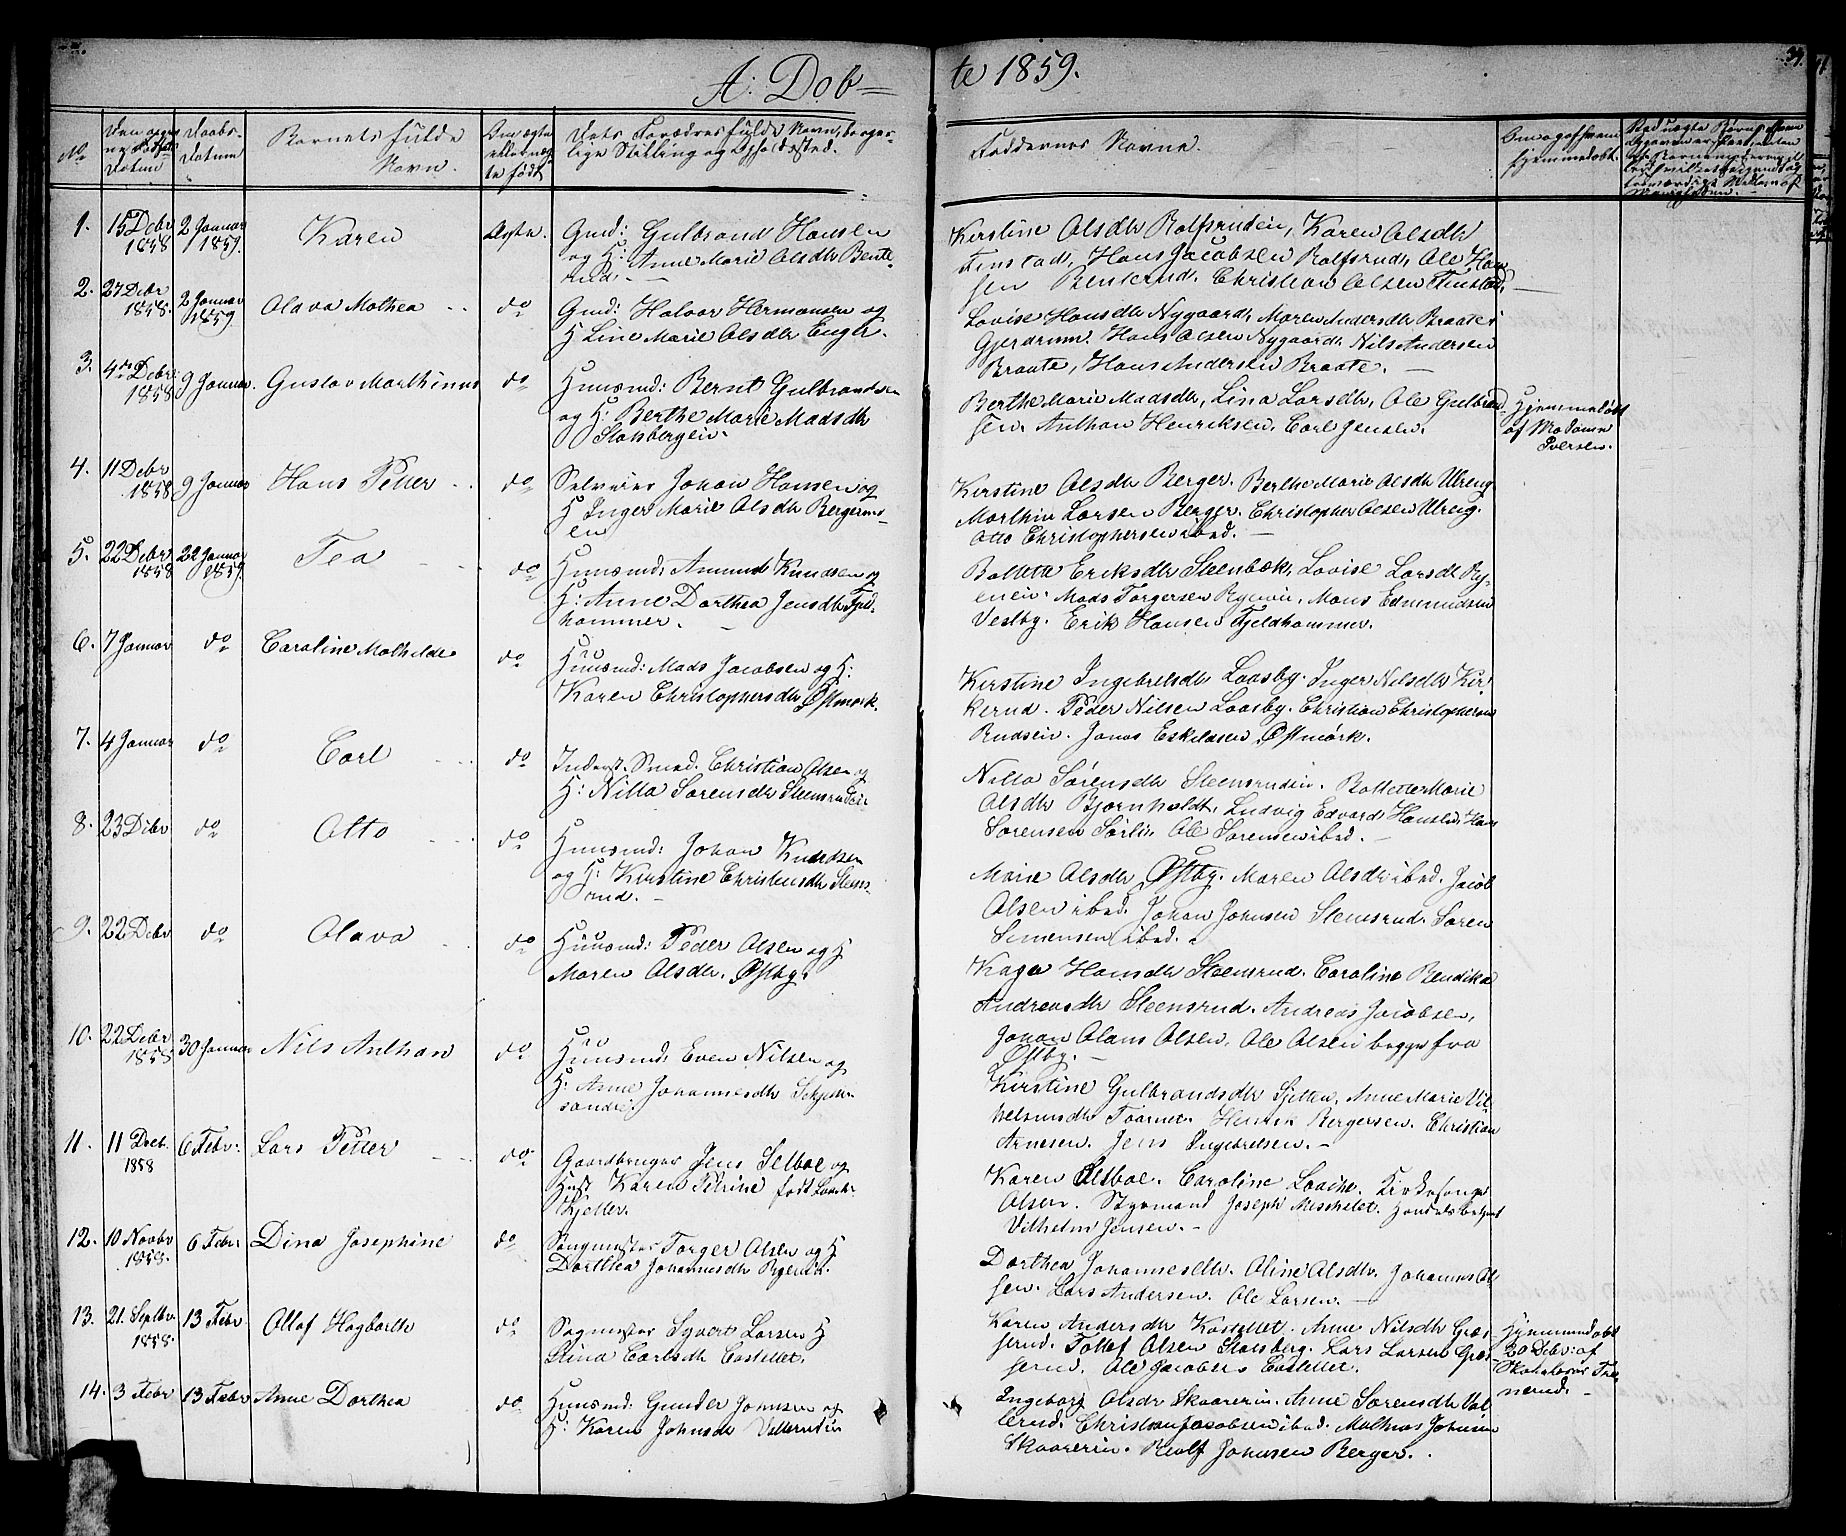 A. Døb-
te 1859.
39.
No
Barnets fulde
Navn.
Døds-
Datum
Faddernes Navne.
1. 15 Debr 1858 2 Januar 1859. Karen Ægte. Gmd: Gulbrand Hansen
og H: Anne Marie Olsdtr Bente-
rud.
Kirstine Olsdtr Rolfsrudein, Karen Olsdtr
Finstad, Hans Jacobsen Rolfsrud, Ole Han-
sen Benterud, Christian Olsen Finstad.
2. 27 Debr 1858. 2 Januar 1859 Olava Mathea do Gmd: Halvor Hermansen og
H Line Marie Olsdtr Enger.
Lovise Hansdtr Nygaard, Maren Andersdtr Braate i
Gjerdrum. Hans Olsen Nygaard, Nils Andersen
Braate, Hans Andersen Braate.
3. 4de Debr 1858 9 Januar. Gustav Marthinus do Huusmd: Bernt Gulbrandsen
og H: Berthe Marie Madsdtr
Stalsbergein.
Berthe Marie Madsdtr, Lina Larsdtr, Ole Gulbrand-
sen. Anthon Henriksen. Carl Jensen.
Hjemmedøbt
af Madame
Iversen.
4. 11 Debr 1858 9 Januar Hans Petter do Selveier Johan Hansen og
H Inger Marie Olsdtr Bergerud-
en
Kirstine Olsdtr Berger. Berthe Marie Olsdtr Ulreng
Marthin Larsen Berger. Christopher Olsen Ulreng.
Otto Christophersen ibid.
5. 22 Debr 1858 22 Januar 1859. Tea do Huusmd: Amund Knudsen og
H: Anne Dorthea Jensdtr Fjeld-
hammer.
Bollette Eriksdtr Steenbæk, Lovise Larsdtr Ry-
enein. Mads Torgersen Ryenein, Mons Edmundsen
Vestby. Erik Hansen Fjeldhammer.
6. 7 Januar do Caroline Mathilde do Huusmd: Mads Jacobsen og H:
Karen Christophersdtr Østmork.
Kirstine Ingebretsdtr Laasby. Inger Nilsdtr Kir-
kerud. Peder Nilsen Laasby. Christian Christophersen
Rudsein. Jonas Eskildsen Østmørk.
7. 4 Januar do Carl do Inderst. Smed. Christian Olsen og
H: Nilla Sørensdtr Steensrudein
Nilla Sørensdtr Steensrudein. Bollette Marie
Olsdtr Bjørnholdt, Ludvig Edvard Hansen, Hans
Sørensen Sørli. Ole Sørensen ibid.
8. 23 Debr do Otto do Huusmd: Johan Knudsen
og H: Kirstine Christensdtr Steens-
rud.
Marie Olsdtr Østby. Maren Olsdtr ibid. Jacob
Olsen ibid. Johan Johnsen Steensrud. Søren
Simensen ibid.
9. 22 Debr do Olava do Huusmd: Peder Olsen og H
Maren Olsdtr. Østby.
Kaja Hansdtr Steensrud. Caroline Bendika
Andreasdtr Steensrud. Andreas Jacobsen,
Johan Olaus Olsen. Ole Olsen begge fra
Østby.
10. 22 Debr 1858 30 Januar Nils Anthon do Huusmd: Even Nilsen og
H: Anne Johannesdtr
Kirstine Gulbrandsdtr Sjetten, Anne Marie Vil-
helmsdtr Taarnet. Henrik Bergersen. Christian
Arnesen. Jens Ingebretsen.
11. 11 Decb. 1858 6 Febr: Lars Petter do Gaardbruger Jens Selboe og
Hust Karen Petrine født Laache
Kjeller.
Karen Selboe. Caroline Laache. Kirkesanger
Olsen. Styrmand Joseph Mischelet. Handelsbetjent
Vilhelm Jensen.
12. 10 Novbr 1858. 6 Febr Dina Josephine do Sagmester Torger Olsen og H
Dorthea Johannesdtr Ryenein.
Dorthea Johannesdtr. Oline Olsdtr. Johannes Ol-
sen. Lars Andersen. Ole Larsen.
13. 21. Septbr. 1858. 13 Febr Ollaf Hagbarth do Sagmester Syvert Larsen H
Stina Carlsdtr Castellet.
Karen Andersdtr Kastellet. Anne Nilsdtr Græs-
serud. Tollef Olsen Stalsberg. Lars Larsen Græs-
serud. Ole Jacobsen Castellet.
Hjemmedøbt
20 Debr: af
Skolelærer
nerud.
14. 3 Febr 13 Febr Anne Dorthea do Huusmd: Gunder Johnsen og
H: Karen Johnsdtr Vallerudein
Ingeborg Olsdtr Skaarerein. Anne Sørensdtr Val-
lerud. Christian Jacobsen ibid. Mathias Johnsen
Skaarerein. Rolf Johnsen Berger.